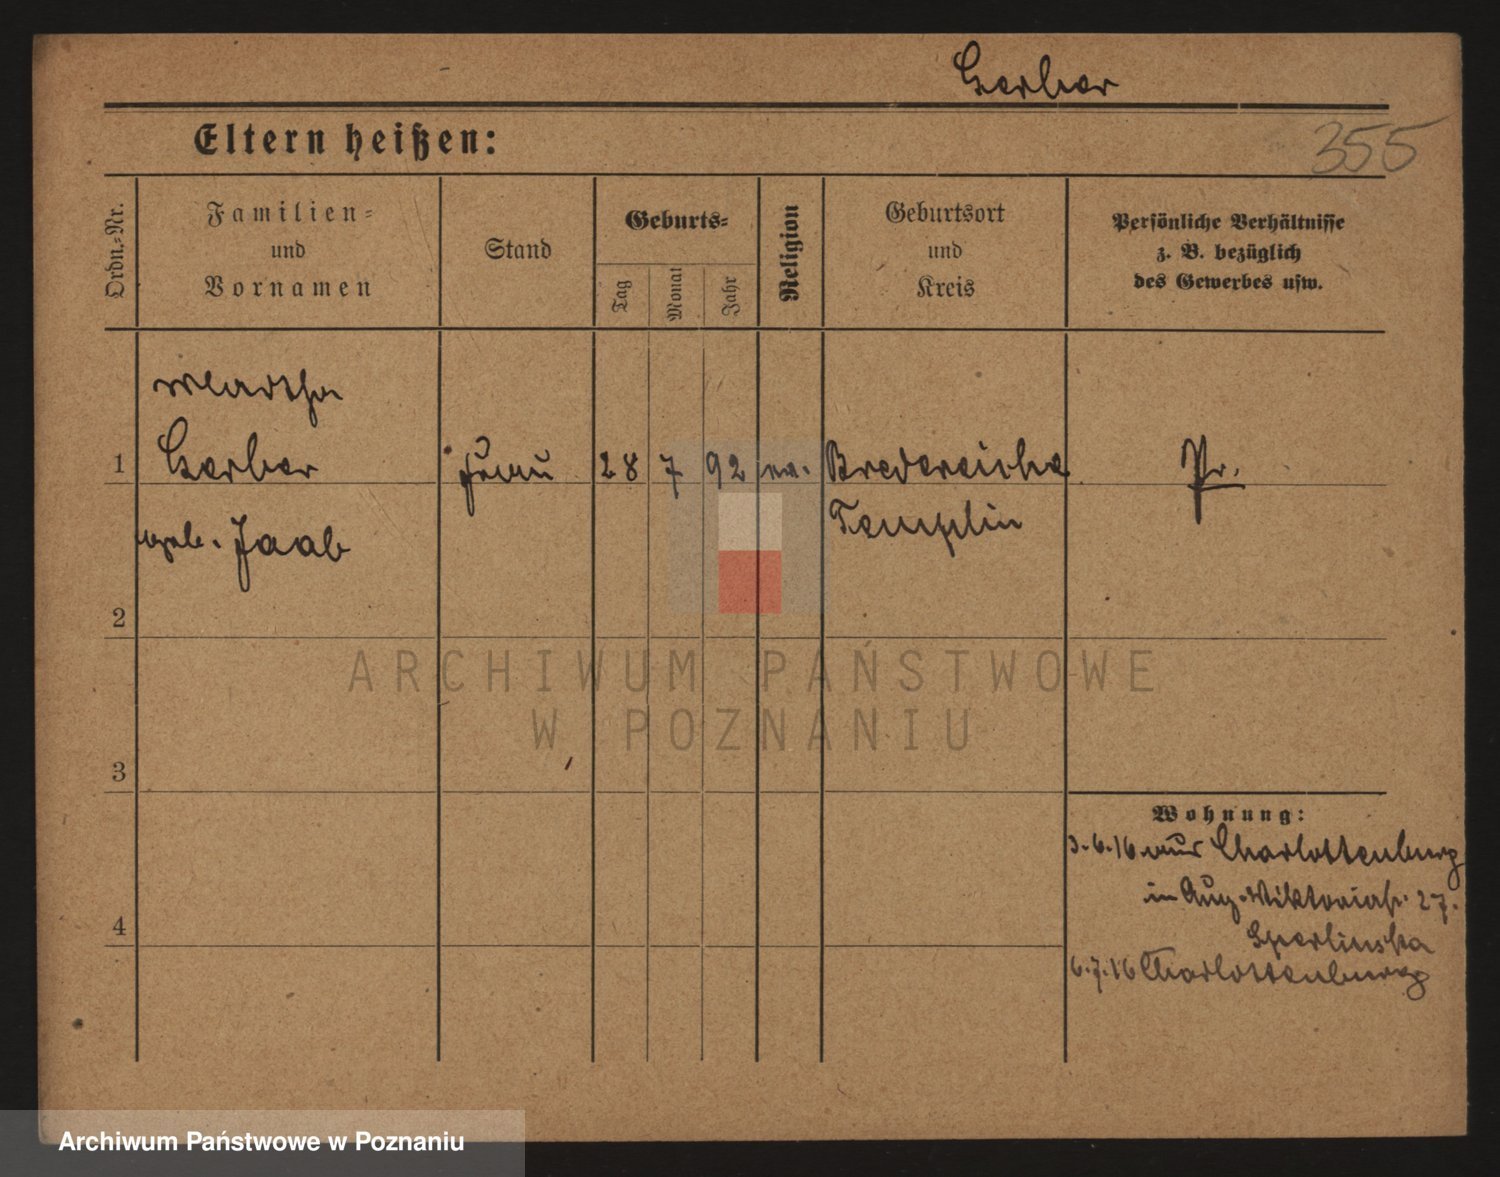 Gerber
355
Eltern heißen:
Ordn.-Nr.
Familien-
und
Vornamen
Stand
Geburts-
Tag
Monat
Jahr
Religion
Geburtsort
und
Kreis
Persönliche Verhältnisse
z. B. bezüglich
des Gewerbes usw.
Martha
1 Gerber Frau 28 7 92 ev. Bredereiche Pr.
geb. Jaab Templin
2
ARCHIWUM PAŃSTWOWE
W POZNANIU
3
Wohnung:
3.6.16 aus Charlottenburg
in Aug. Viktoriastr. 27.
4
6.7.16 Charlottenburg
Archiwum Państwowe w Poznaniu